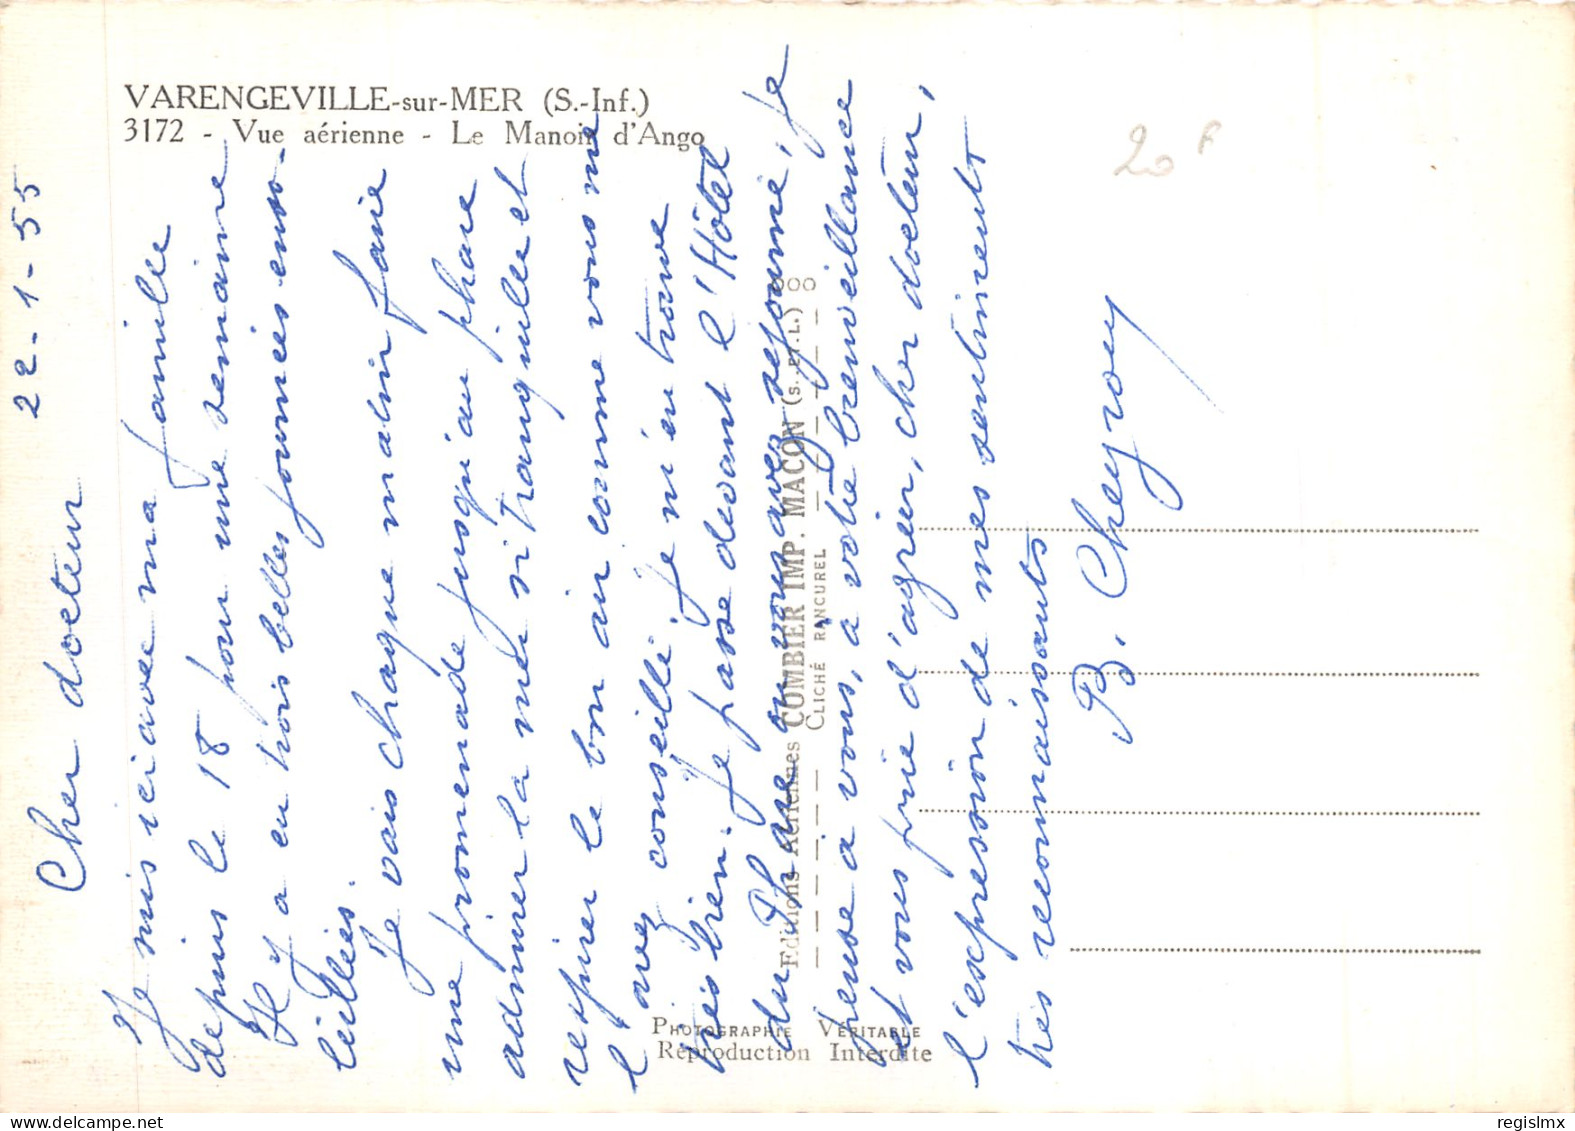 VARENGEVILLE-sur-MER (S.-Inf.)
3172 - Vue aérienne - Le Manoir d'Ango
20F
22-1-55
Cher docteur
Je suis ici avec ma famille
depuis le 18 pour une semaine
Il y a eu trois belles journées enso-
leillées.
Je vais chaque matin faire
une promenade jusqu'au phare
admirer la mer si tranquille et
respirer le bon air comme vous me
l'avez conseillé. Je m'en trouve
très bien. Je passe devant l'Hôtel
du Phare où vous avez séjourné, Je
pense à vous, à votre bienveillance
et vous prie d'agréer, cher docteur,
l'expression de mes sentiments
très reconnaissants
B. Cheyrouy
Editions Aériennes COMBIER IMP. MACON (S.-ET-L.) 000
CLICHÉ RANCUREL
PHOTOGRAPHIE VÉRITABLE
Reproduction Interdite
regislmx